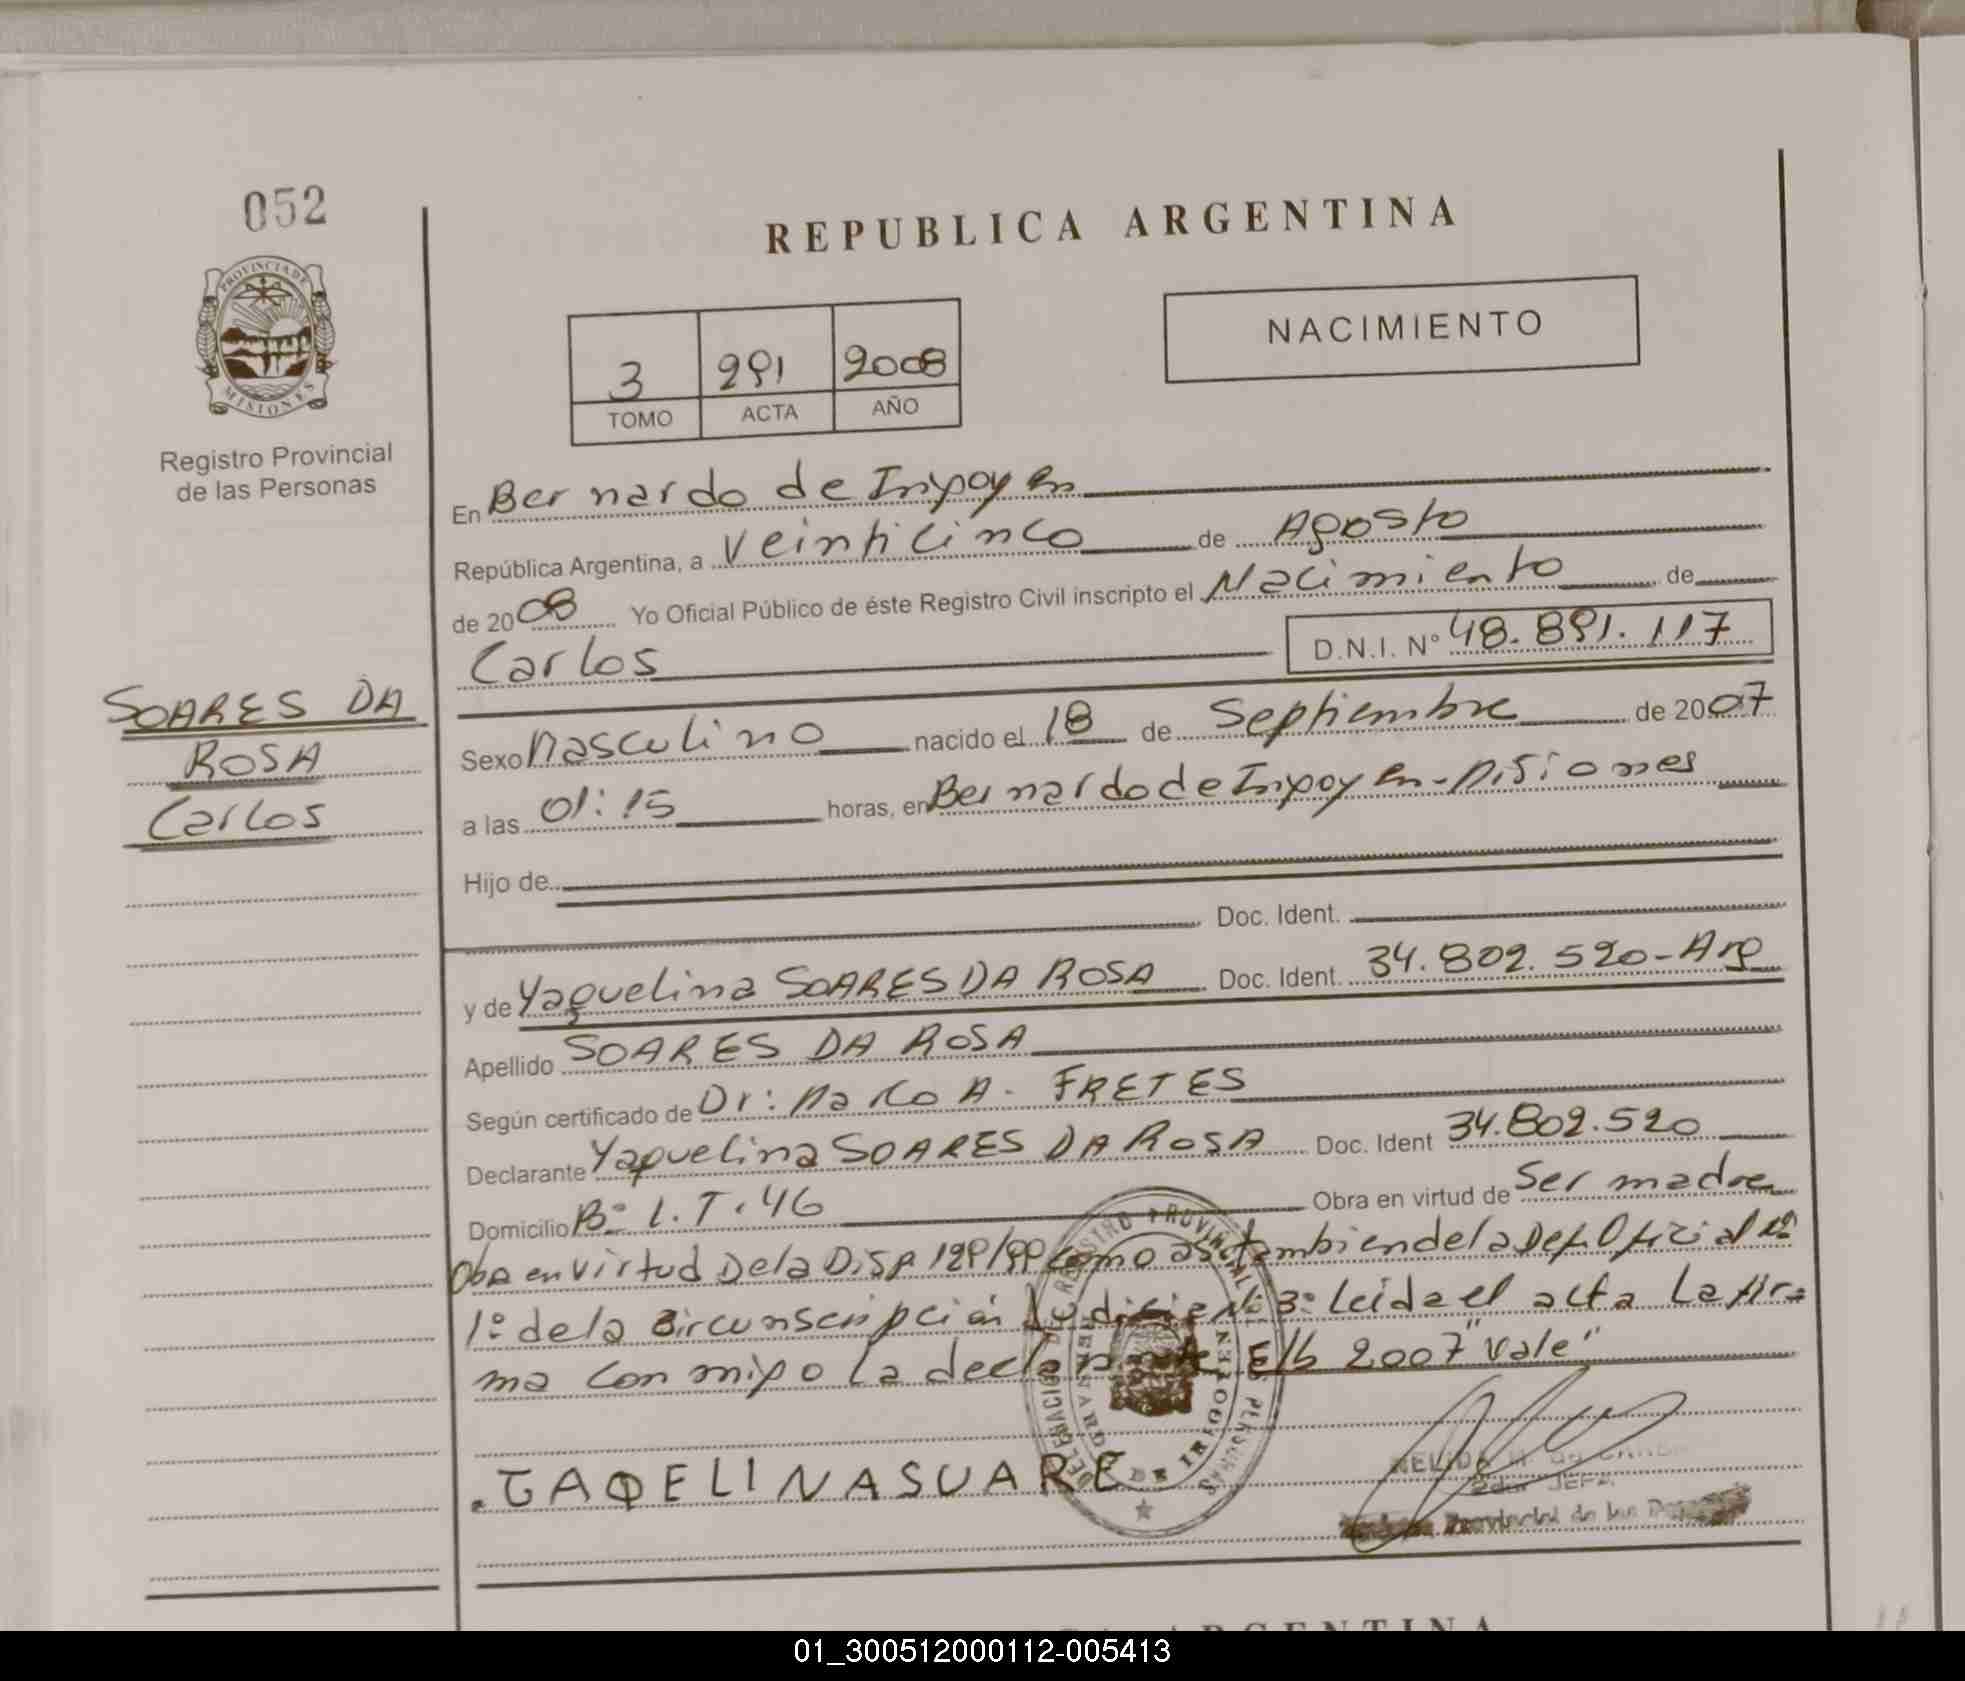 052
REPUBLICA ARGENTINA
PROVINCIA DE
MISIONES
NACIMIENTO
3 291 2008
TOMO ACTA AÑO
Registro Provincial
de las Personas
En Bernardo de Irigoyen
República Argentina, a Veinticinco de Agosto
de 2008 Yo Oficial Público de éste Registro Civil inscripto el Nacimiento de
Carlos D.N.I. N° 48.891.117
SOARES DA
ROSA
Carlos
Sexo Masculino nacido el 18 de Septiembre de 2007
a las 01:15 horas, en Bernardo de Irigoyen - Misiones
Hijo de
Doc. Ident.
y de Yaquelina SOARES DA ROSA Doc. Ident. 34.802.520 - Arg
Apellido SOARES DA ROSA
Según certificado de Dr: Marco A. FRETES
Declarante Yaquelina SOARES DA ROSA Doc. Ident 34.802.520
Domicilio B° I.T. 46 Obra en virtud de Ser madre
Oba en virtud De la Disp 129/99 como asi tambien de la Def. Oficial N°
1° de la Circunscripción Judicial N° 3° Leida el acta La fir=
ma conmigo la declarante E/b 2007 "Vale"
DELEGACION DE REGISTRO PROVINCIAL DE PERSONAS
BERNARDO DE IRIGOYEN
JAQELINASUARE
JEFA
Provincial de las
ARGENTINA
01_300512000112-005413